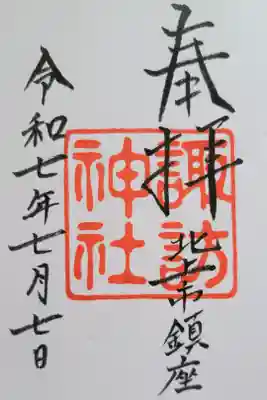 奉拝
諏訪
神社
鎮座
令和七年七月七日